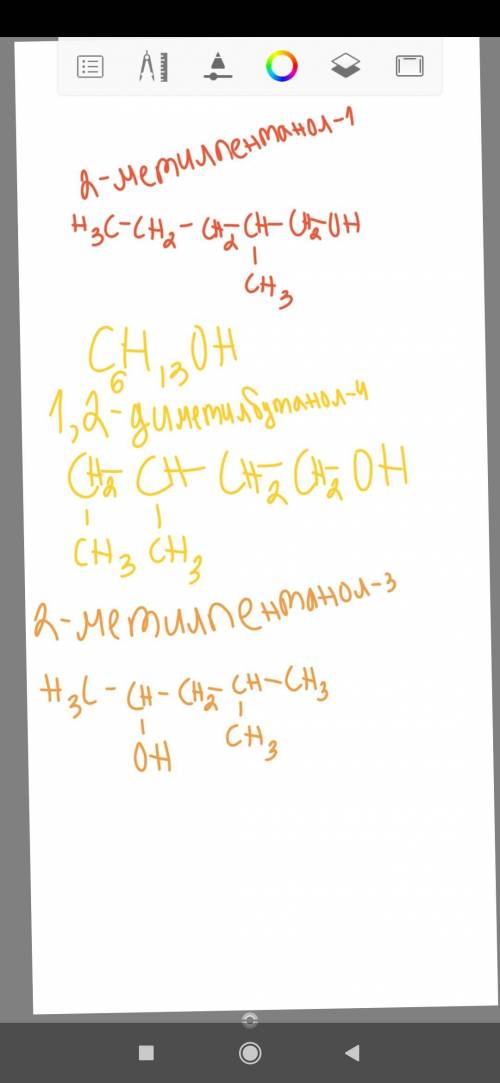 2-метилпентанол-1
H3C-CH2-CH2-CH-CH2-OH
CH3
C6H13OH
1,2-диметилбутанол-4
CH2-CH-CH2-CH2-OH
CH3 CH3
2-метилпентанол-3
H3C-CH-CH2-CH-CH3
OH CH3